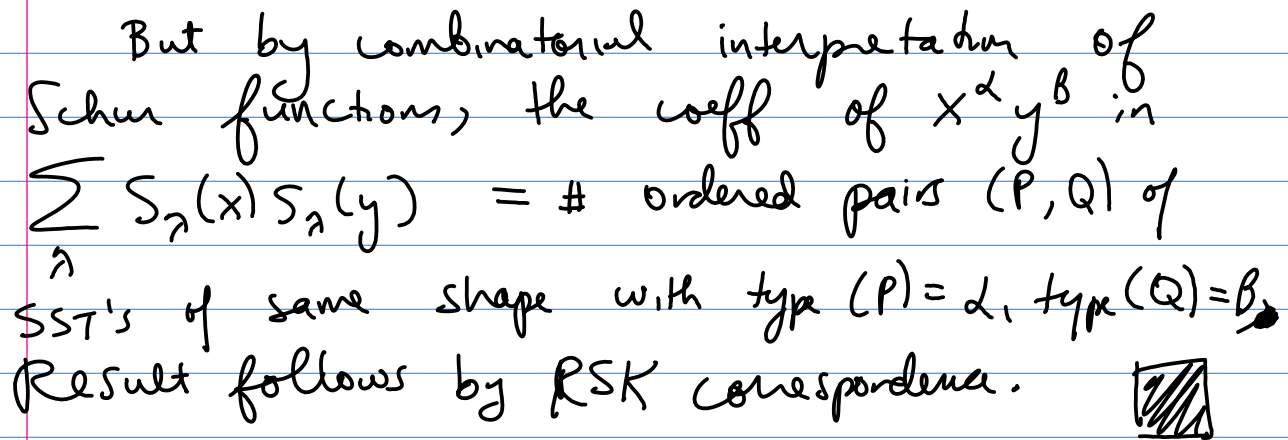 But by combinatorial interpretation of
Schur functions, the coeff of x^α y^β in
∑_λ S_λ(x) S_λ(y) = # ordered pairs (P, Q) of
SST's of same shape with type (P) = α, type (Q) = β.
Result follows by RSK correspondence.